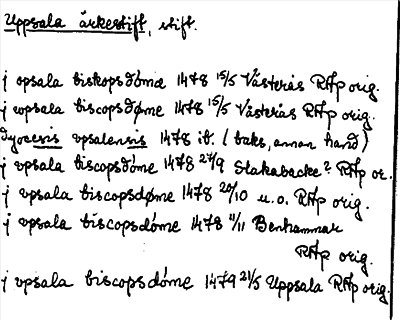 Uppsala ärkestift, stift.
j opsala biskopsdöme 1478 15/5 Västerås RAp orig.
j wpsala biscopsdøme 1478 15/5 Västerås RAp orig.
dyocesis vpsalensis 1478 ib. (baks, annan hand)
j vpsala biscopsdóme 1478 27/9 Stakabacke? RAp or.
j vpsala biscopsdøme 1478 20/10 u.o. RAp orig.
j vpsala biscopsdóme 1478 11/11 Benhammar
RAp orig.
j vpsala biscopsdóme 1479 21/5 Uppsala RAp orig.